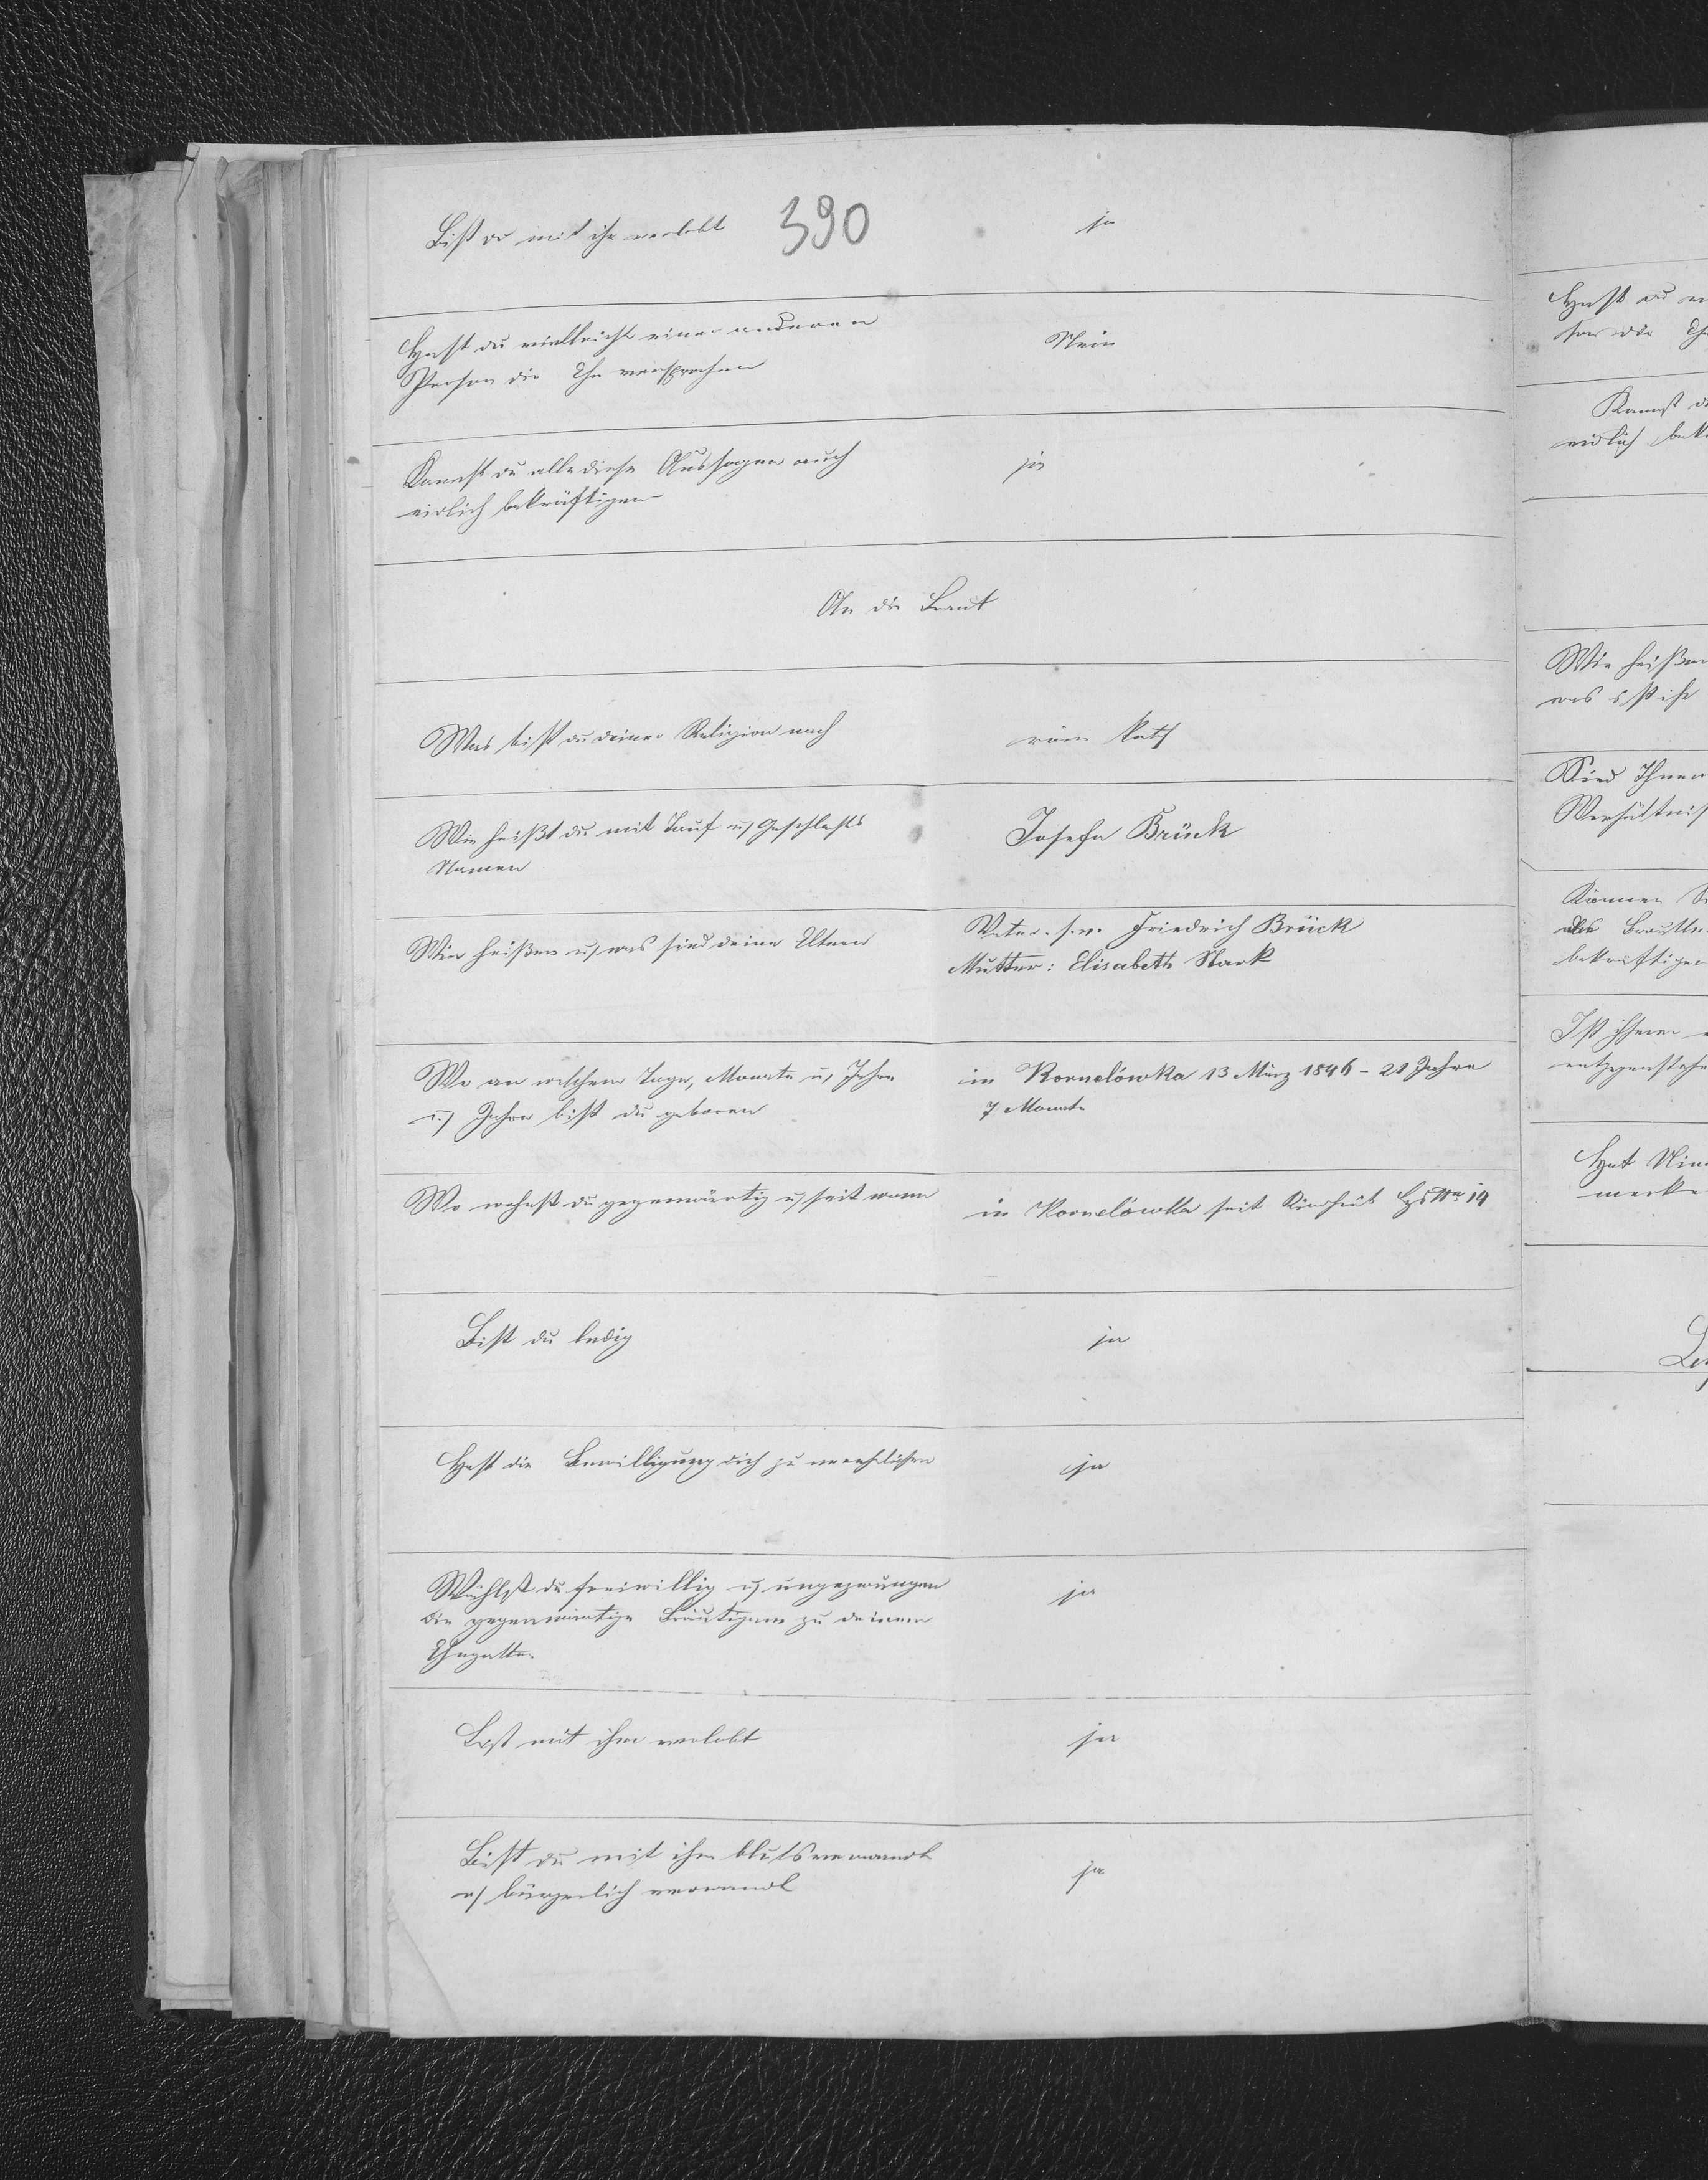 Bist du mit ihr verlobt 390 ja
Hast du vielleicht einer anderen Nein
Person die Ehe versprochen
Kannst du alle diese Aussagen auch ja
eidlich bekräftigen
An die Braut
Was bist du deiner Religion nach röm kath
Wie heißt du mit Tauf u, Geschlechts Josefa Brück
Namen
Wie heißen u, was sind deine Eltern Vater Friedrich Brück
Mutter: Elisabeth Stark
Wo an welchem Tage, Monate u, Jahre in Kornelówka 13 März 1846 - 21 Jahre
u, Jahre bist du geboren 7 Monate
Wo wohnst du gegenwärtig u, seit wann in Kornelówka seit Kindheit Hs Nro 14
Bist du ledig ja
Hast die Bewilligung dich zu verehelichen ja
Wählst du freiwillig u, ungezwungen ja
die gegenwärtige Bräutigam zu deinem
Ehegatten
Bist mit ihm verlobt ja
Bist du mit ihm blutsverwandt ja
o, bürgerlich verwandt
Hast du
die
Kannst
eidlich
Wie heißen
was ist ihr
Sind Ihnen
Verhältnis
Können
als
bekräftigen
Ist ihnen
entgegenstehe
Hat
merke